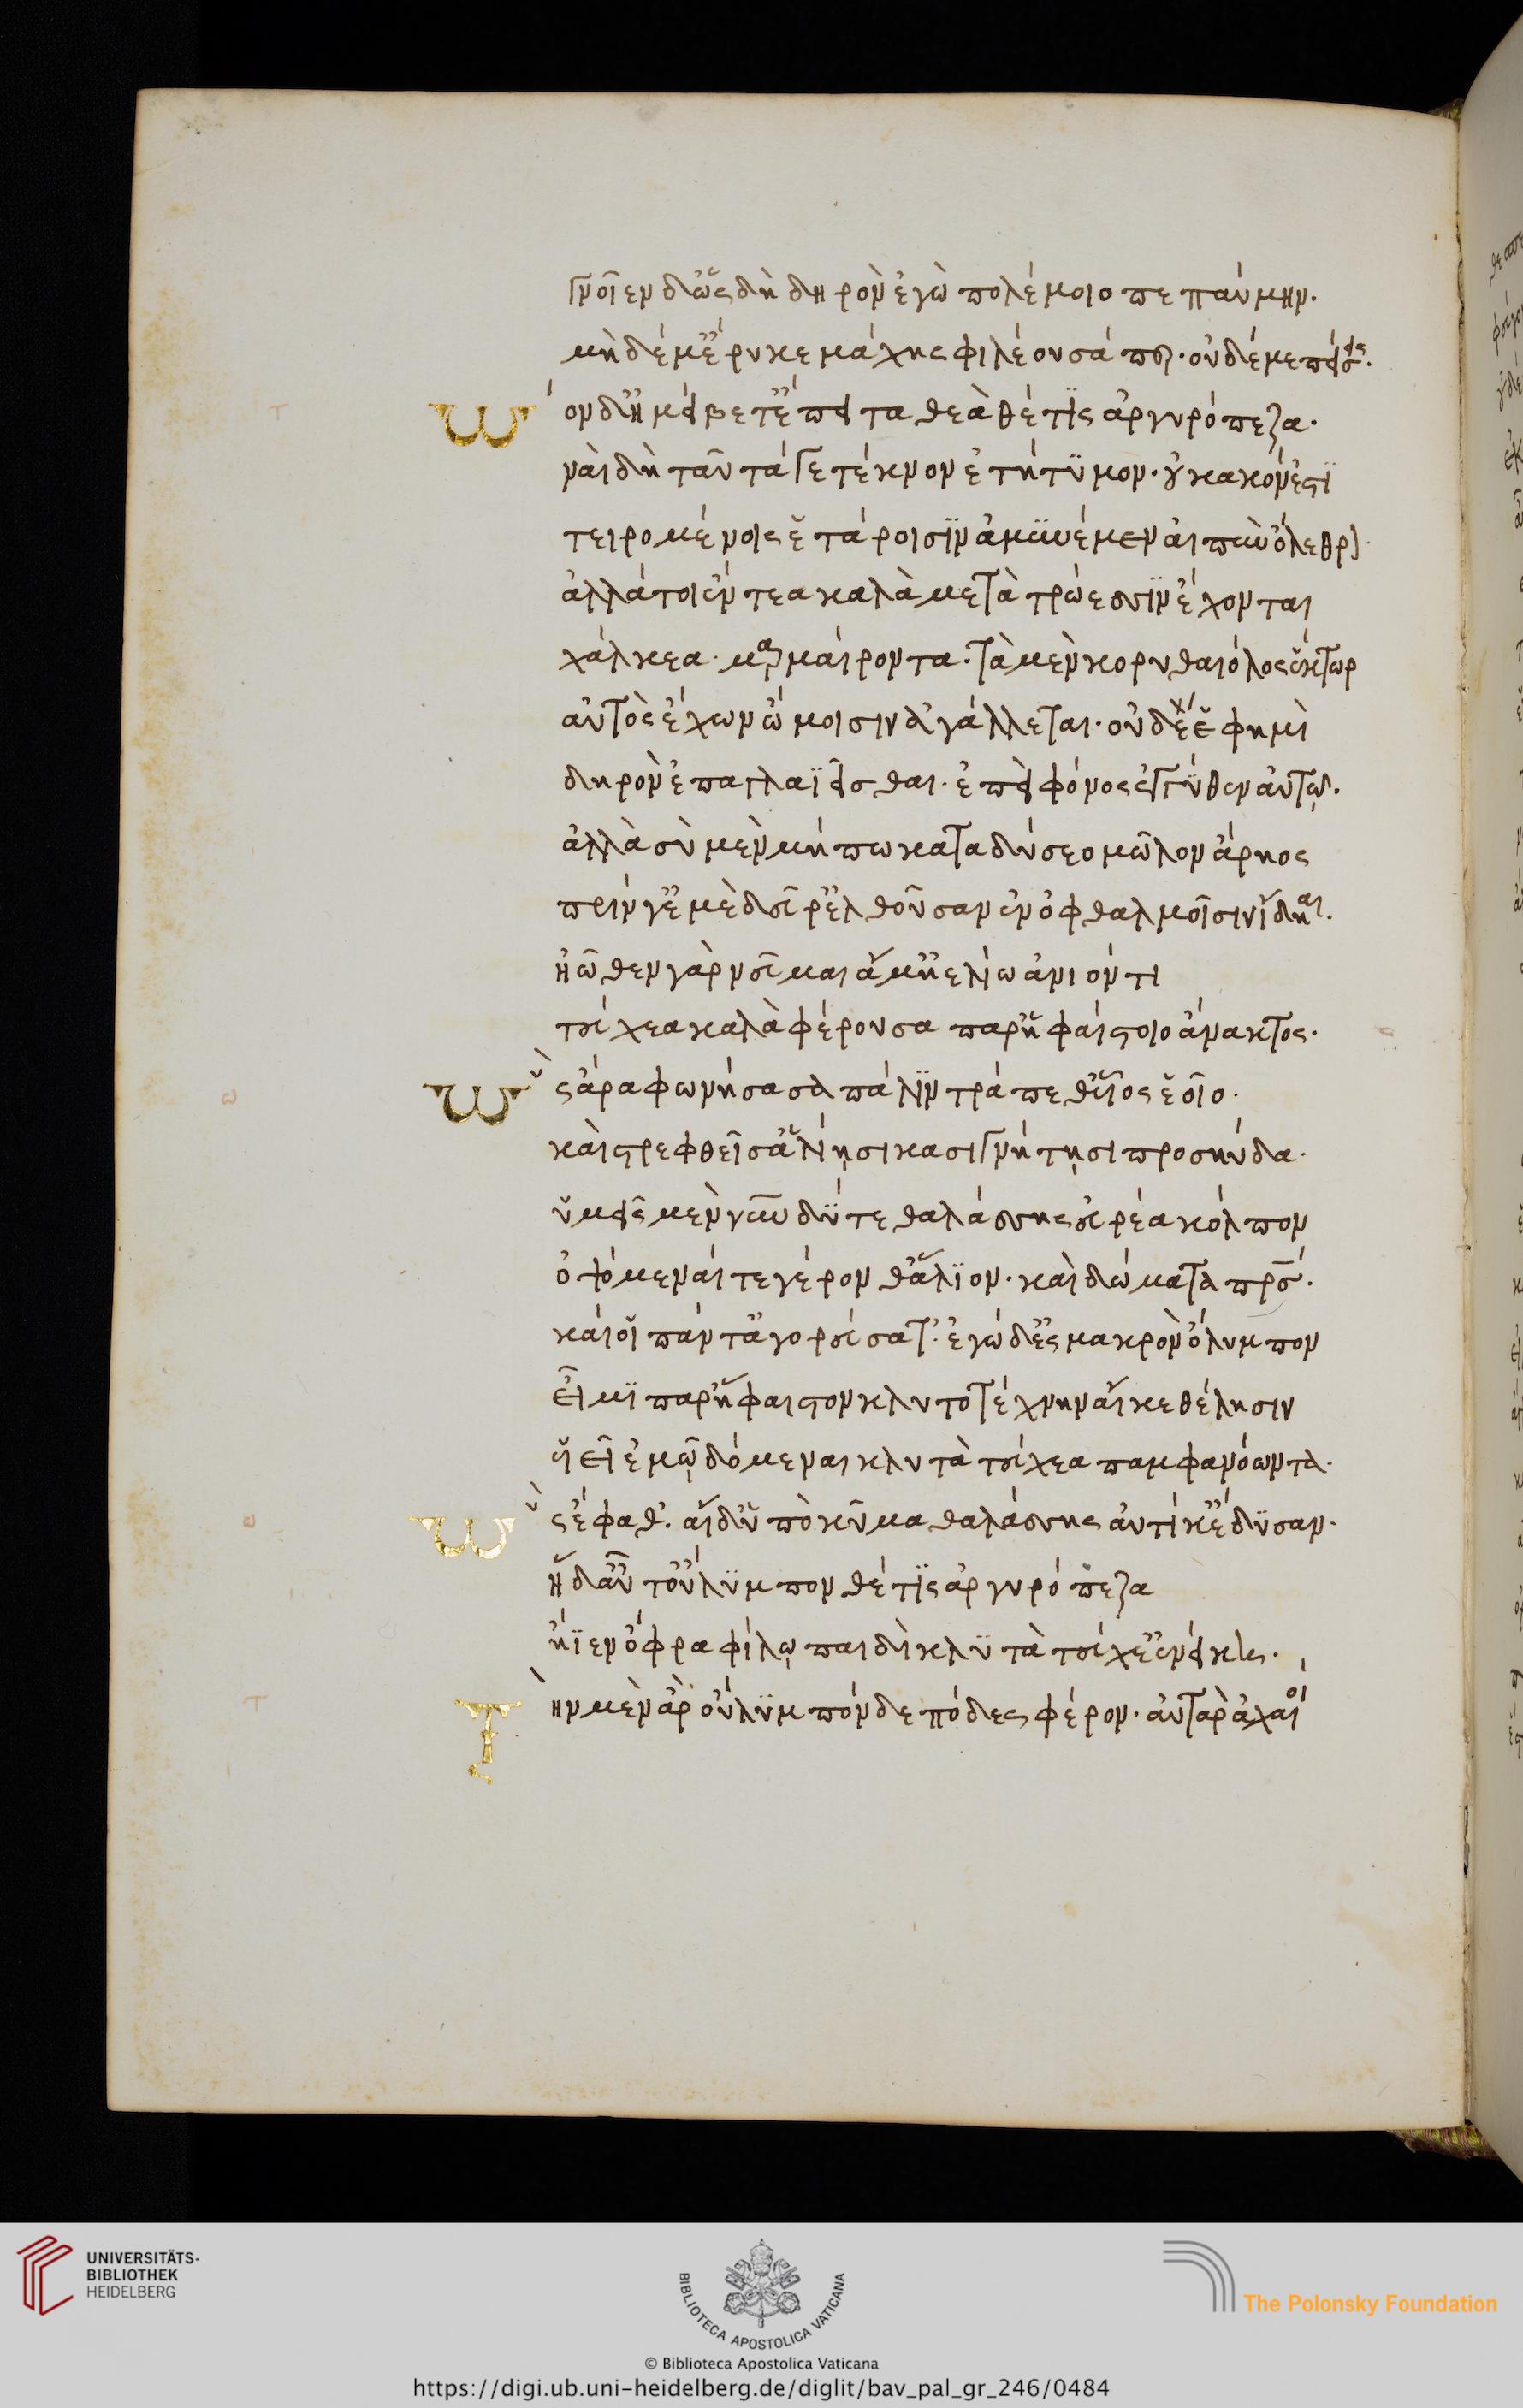 γνοῖεν δ' ὡς δὴ δηρὸν ἐγὼ πολέμοιο πέπαυμην·
μὴ δέ μ' ἔρυκε μάχης φιλέουσά περ· οὐδέ με πείσεις·
Τὸν δ' ἠμείβετ' ἔπειτα θεὰ θέτϊς ἀργυρόπεζα·
ναὶ δὴ ταῦτά γε τέκνον ἐτήτϋμον· οὐ κακόν ἐστϊ
τειρομένοις ἑτάροισϊν ἀμϋνέμεν αἰπὺν ὄλεθρον·
ἀλλά τοι ἔντεα καλὰ μετὰ τρώεσσϊν ἔχονται
χάλκεα· μαρμαίροντα· τὰ μὲν κορυθαιόλος ἕκτωρ
αὐτὸς ἔχων ὤμοισιν ἀγάλλεται· οὐδέ ἕ φημὶ
δηρὸν ἐπαγλαϊεῖσθαι· ἐπεὶ φόνος ἐγγύθεν αὐτῷ·
ἀλλὰ σὺ μὲν μήπω καταδύσεο μῶλον ἄρηος
πρίν γ' ἐμὲ δεῦρ' ἐλθοῦσαν ἐν ὀφθαλμοῖσιν ἴδηαι·
ἠῶθεν γὰρ νεῦμαι ἅμ' ἠελίω ἀνιόντι
τεύχεα καλὰ φέρουσα παρ' ἡφαίστοιο ἄνακτος·
Ὣς ἄρα φωνήσασα πάλϊν τράπεθ' υἷος ἑοῖο·
καὶ στρεφθεῖσ' ἁλίῃσι κασιγνήτῃσι προσηύδα·
ὑμεῖς μὲν νῦν δῦτε θαλάσσης εὐρέα κόλπον
ὀψόμεναί τε γέρονθ' ἅλϊον· καὶ δώματα πατρός·
καί οἱ πάντ' ἀγορεύσατ'· ἐγὼ δ' ἐς μακρὸν ὄλυμπον
εἶμϊ παρ' ἥφαιστον κλυτοτέχνην αἴ κε θέλησιν
υἷεϊ ἐμῷ δόμεναι κλυτὰ τεύχεα παμφανόωντα·
Ὣς ἔφαθ'· αἱ δ' ὑπὸ κῦμα θαλάσσης αὐτίκ' ἔδϋσαν·
ἡ δ' αὖτ' οὔλϋμπον θέτϊς ἀργυρόπεζα
ἤϊεν ὄφρα φίλῳ παιδὶ κλϋτὰ τεύχε' ἐνείκαι·
Τὴν μὲν ἄρ' οὔλϋμπόνδε πόδες φέρον· αὐτὰρ ἀχαιοὶ
UNIVERSITÄTS-
BIBLIOTHEK
HEIDELBERG
BIBLIOTECA APOSTOLICA VATICANA
The Polonsky Foundation
© Biblioteca Apostolica Vaticana
https://digi.ub.uni-heidelberg.de/diglit/bav_pal_gr_246/0484